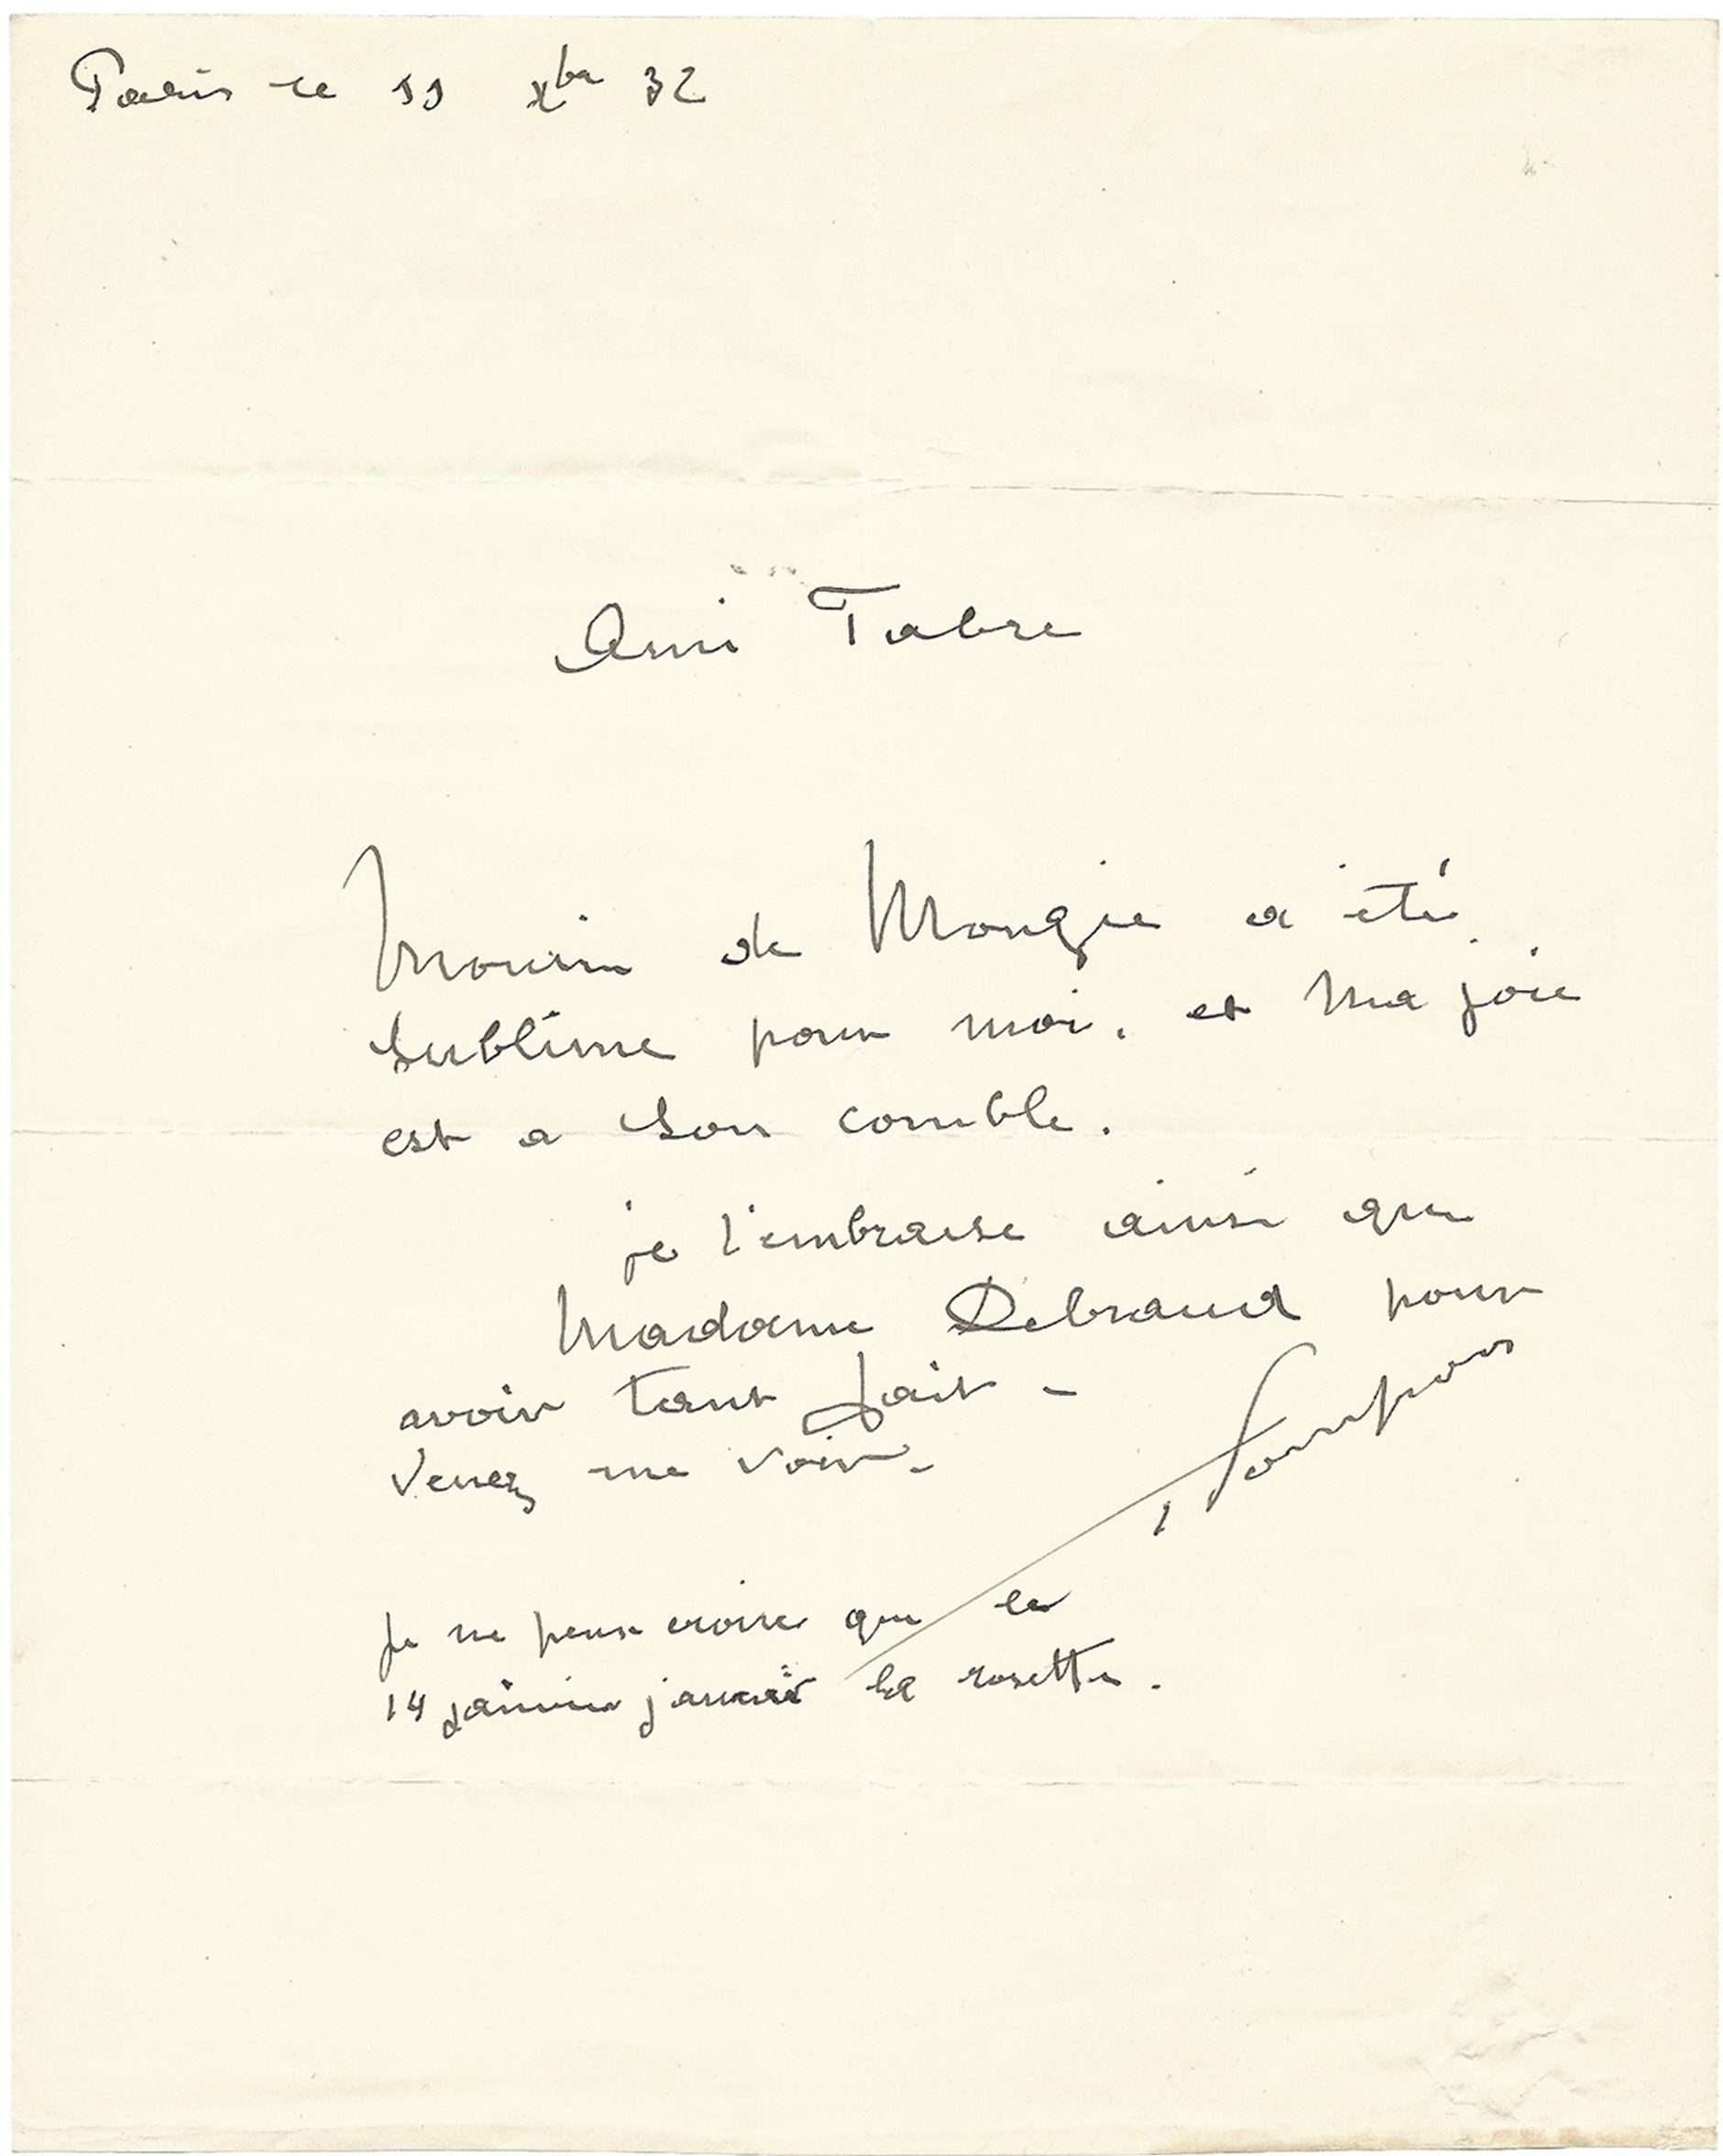 Paris le 11 Xbre 32
Ami Fabre
Monsieur de Monzie a été
sublime pour moi. et ma joie
est a son comble.
je l'embrasse ainsi que
Madame Debraud pour
avoir tant fait -
Venez me voir -
Pompon
Je ne peux croire que le
14 janvier j'aurai la rosette.